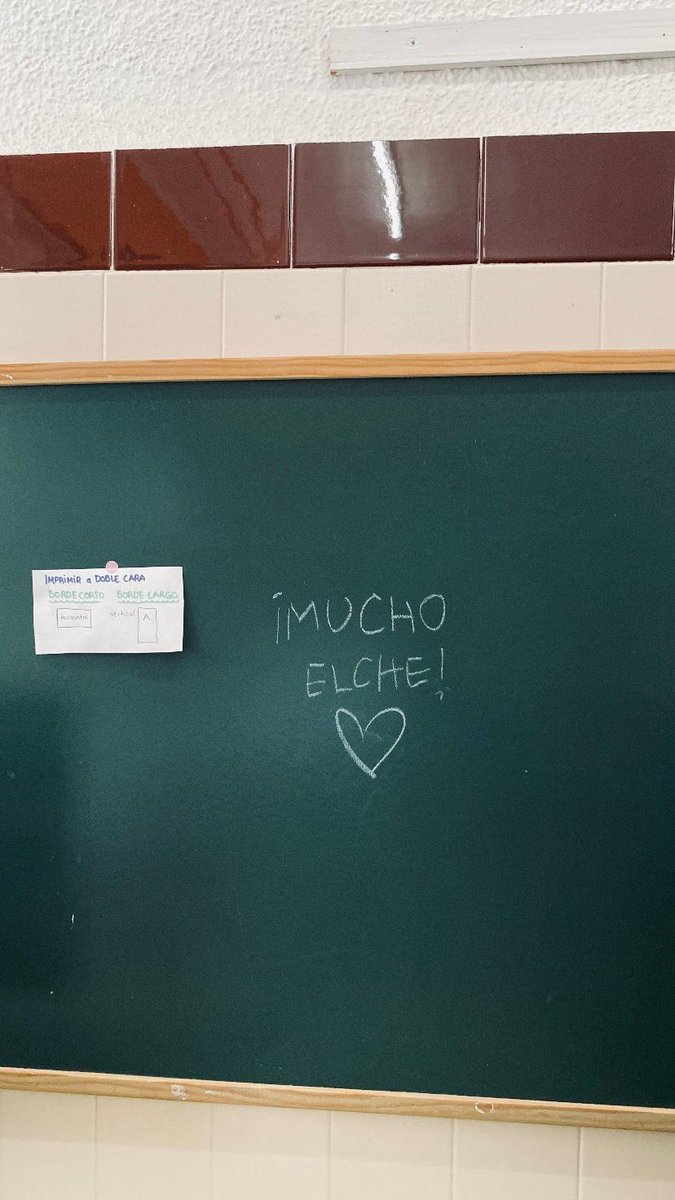 IMPRIMIR a DOBLE CARA
BORDE CORTO BORDE LARGO
Horizontal Vertical A
¡MUCHO
ELCHE!